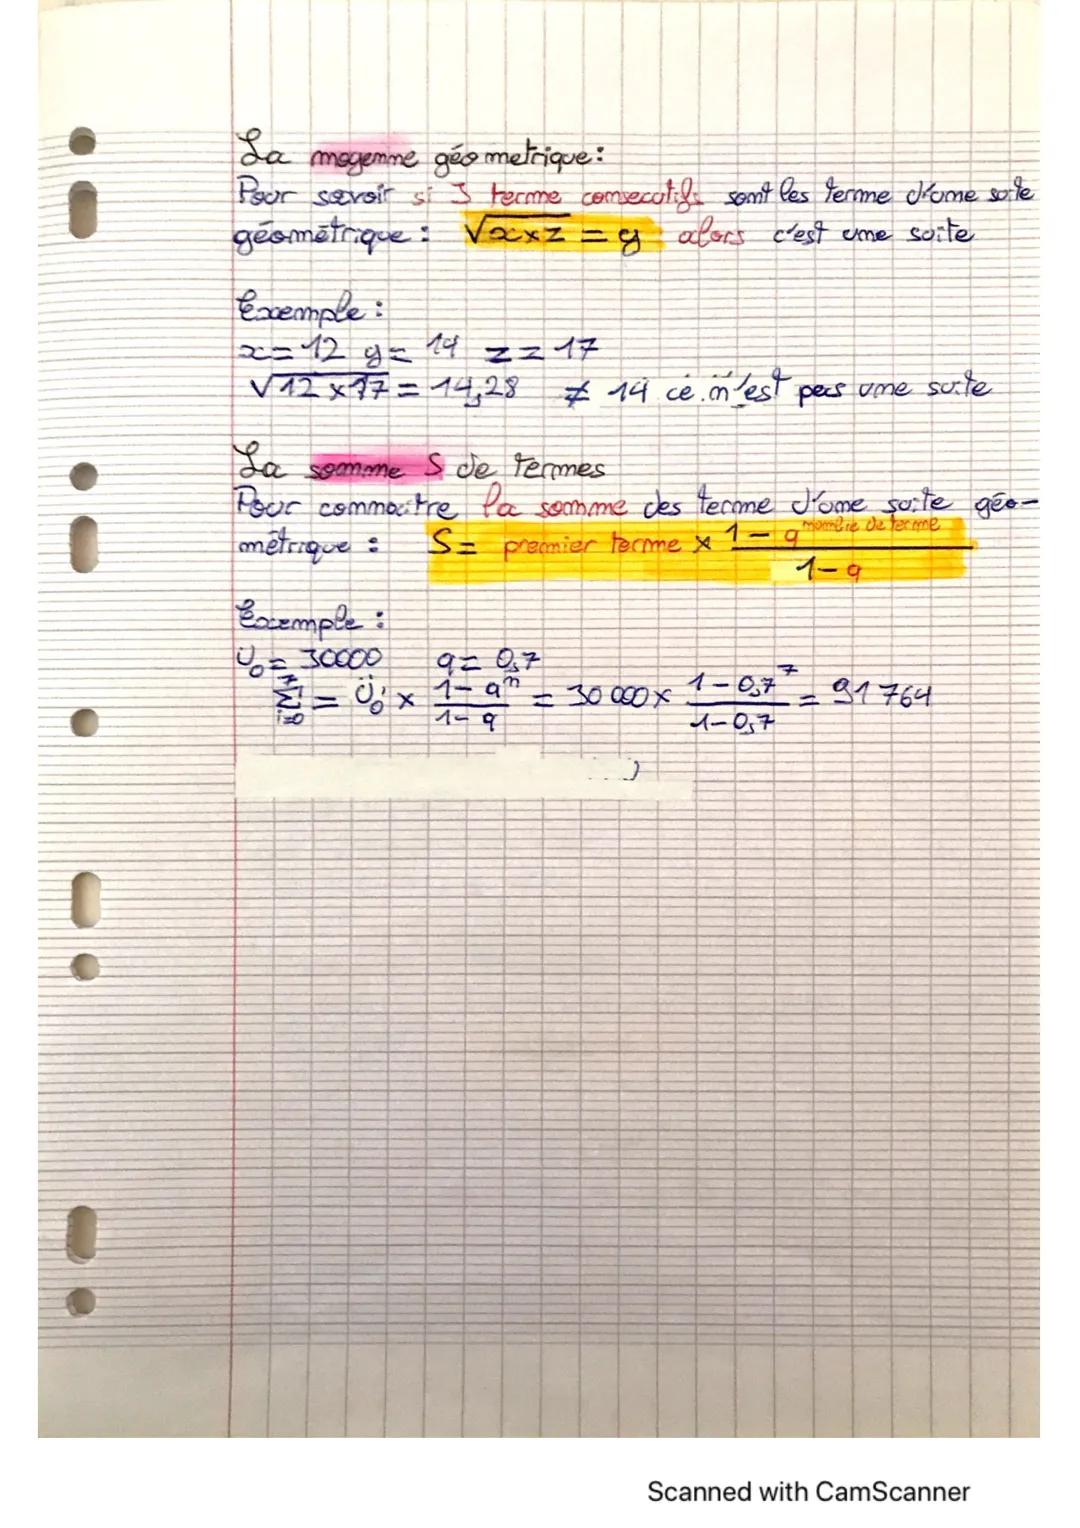 La moyenne géometrique:
Pour savoir si 3 terme consecutifs sont les terme d'une suite
géométrique : √x×z = y alors c'est une suite
Exemple :
x = 12 y = 14 z = 17
√12×17 = 14,28 ≠ 14 ce n'est pas une suite
La somme S de termes
Pour connaitre la somme des terme d'une suite géo-
métrique : S = premier terme × (1 - q^nombre de terme)/(1 - q)
Exemple :
U₀ = 30000 q = 0,7
7 Σ i=0 = U₀ × (1 - q^n)/(1 - q) = 30 000 × (1 - 0,7^7)/(1 - 0,7) = 91 764
Scanned with CamScanner